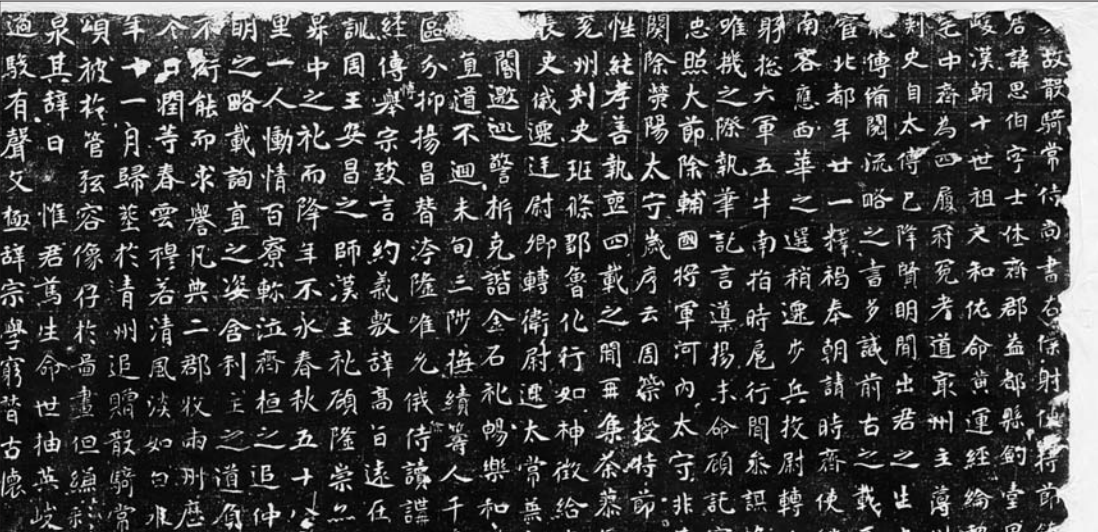 故散騎常侍尚書右僕射使持節
君諱思伯字士休齊郡益都縣釣臺
峻漢朝十世祖文和佐命黃運經綸
宅中齊為四履冠冕者道冣州主簿
刾史自太傅已降賢明間出君之生
傳備閱流略之書多識前古之載
宦北都年廿一釋褐奉朝請時齊使
南容應西華之選稍遷步兵挍尉轉
躬捴六軍五牛南指時扈行間叅謀
唯機之際執筆記言導揚末命顧記
忠照大節除輔國將軍河內太守非
闕除滎陽太守歲序云周授持節
性純孝善執喪四載之間再集荼蓼
兗州刾史班條鄒魯化行如神徵給
長史俄遷廷尉卿轉衛尉遷太常無
閽邀巡警柝克諧金石礼暢樂和
直道不迴未旬三陟撫績等人千
區分抑揚昌洿隆唯允俄侍讀講
經傳舉宗致言約義敷辞高旨遠在
訓周王安昌之師漢主礼碩隆崇
昇中之礼而降年不永春秋五十
里一人慟情百寮軫泣齊桓之追仲
明之略載詢直之姿含利主之道負
不衒能而求譽凡典二郡牧兩州歷
今日潤等春雲穆若清風淡如
年十一月歸塟於清州追贈散騎常
頌被於管弦容像仔於啚畫但縑
泉其辞曰惟君篤生命世抽英
過駿有聲父極辞宗學窮昔古懷